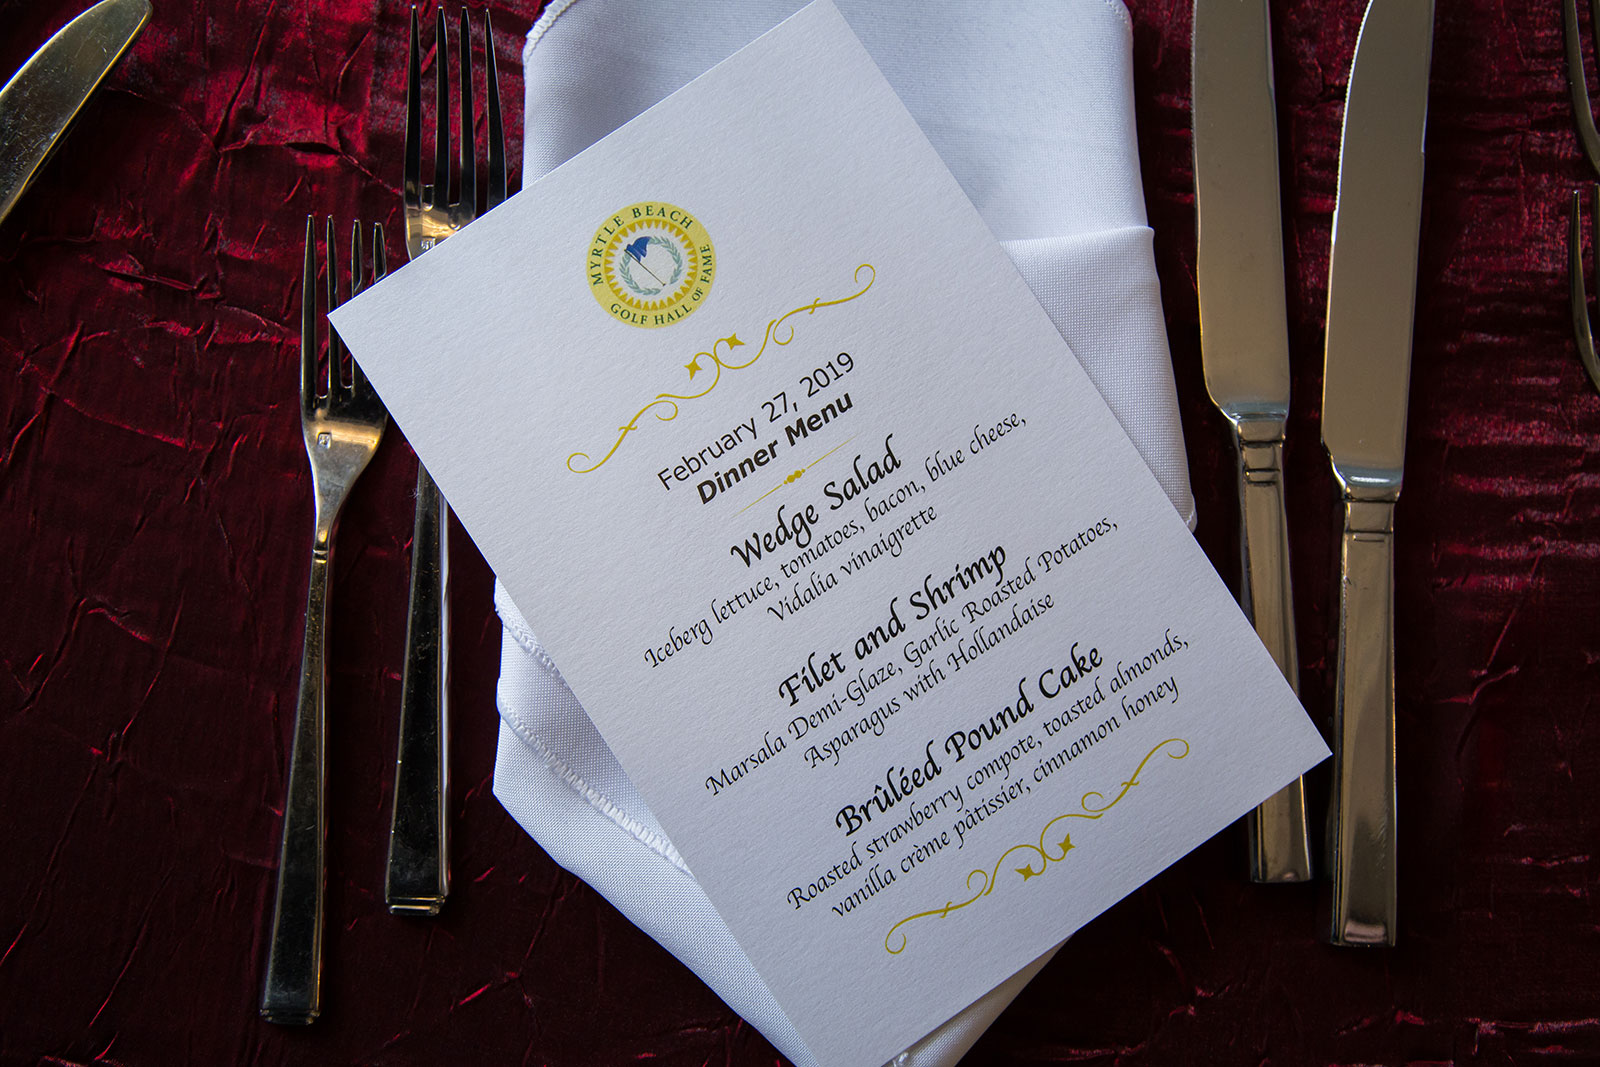 MYRTLE BEACH
GOLF HALL OF FAME
February 27, 2019
Dinner Menu
Wedge Salad
Iceberg lettuce, tomatoes, bacon, blue cheese,
Vidalia vinaigrette
Filet and Shrimp
Marsala Demi-Glaze, Garlic Roasted Potatoes,
Asparagus with Hollandaise
Brûléed Pound Cake
Roasted strawberry compote, toasted almonds,
vanilla crème pâtissier, cinnamon honey